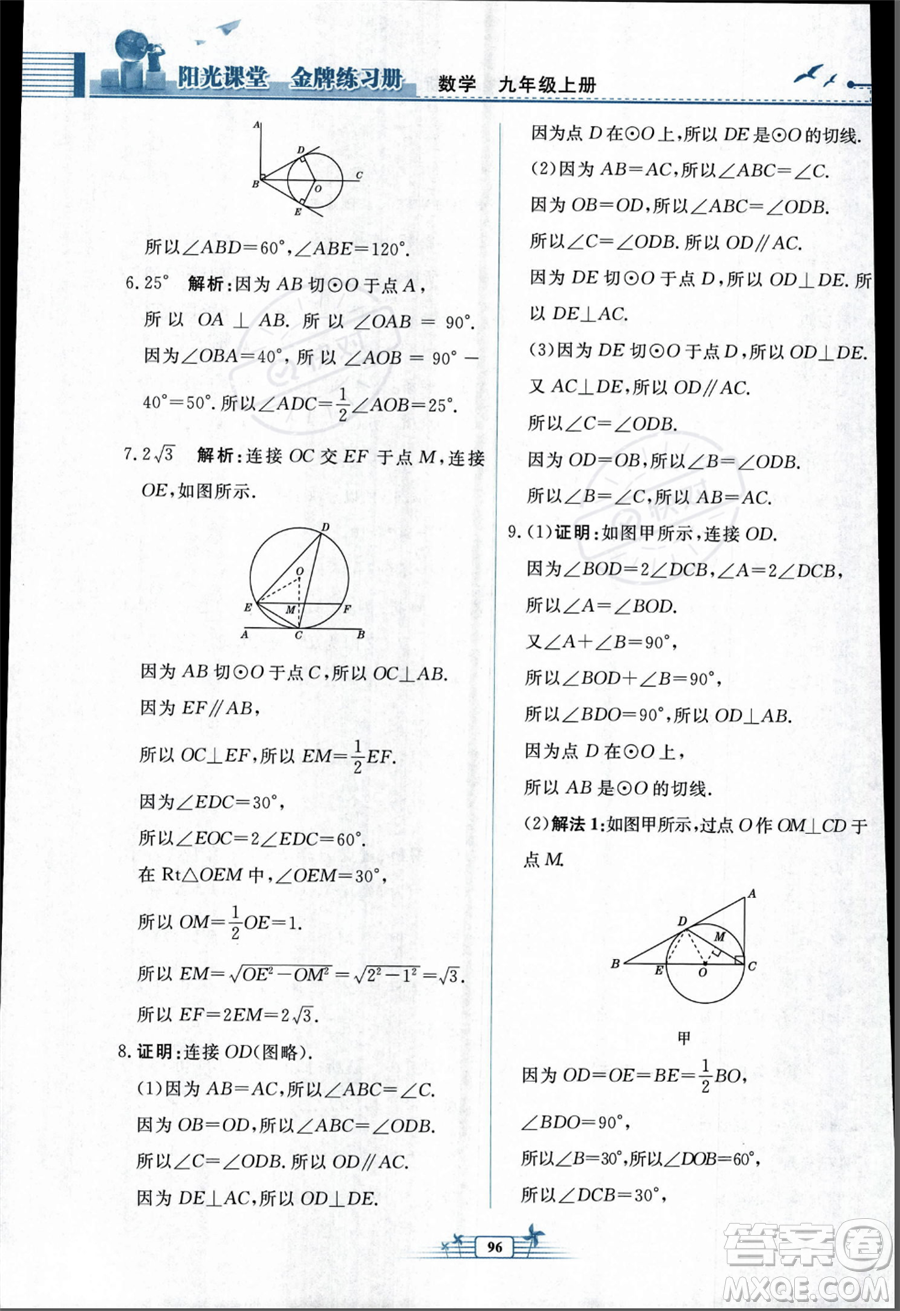 阳光课堂 金牌练习册 数学 九年级上册
A
D
B
O
C
E
所以∠ABD=60°,∠ABE=120°.
6.25° 解析:因为AB切⊙O于点A,
所以OA⊥AB.所以∠OAB=90°.
因为∠OBA=40°,所以∠AOB=90°-
40°=50°.所以∠ADC=1/2∠AOB=25°.
7.2√3 解析:连接OC交EF于点M,连接
OE,如图所示.
D
O
E
M
F
A
C
B
因为AB切⊙O于点C,所以OC⊥AB.
因为EF∥AB,
所以OC⊥EF,所以EM=1/2EF.
因为∠EDC=30°,
所以∠EOC=2∠EDC=60°.
在Rt△OEM中,∠OEM=30°,
所以OM=1/2OE=1.
所以EM=√(OE²-OM²)=√(2²-1²)=√3.
所以EF=2EM=2√3.
8.证明:连接OD(图略).
(1)因为AB=AC,所以∠ABC=∠C.
因为OB=OD,所以∠ABC=∠ODB.
所以∠C=∠ODB.所以OD∥AC.
因为DE⊥AC,所以OD⊥DE.
因为点D在⊙O上,所以DE是⊙O的切线.
(2)因为AB=AC,所以∠ABC=∠C.
因为OB=OD,所以∠ABC=∠ODB.
所以∠C=∠ODB.所以OD∥AC.
因为DE切⊙O于点D,所以OD⊥DE.所
以DE⊥AC.
(3)因为DE切⊙O于点D,所以OD⊥DE.
又AC⊥DE,所以OD∥AC.
所以∠C=∠ODB.
因为OD=OB,所以∠B=∠ODB.
所以∠B=∠C,所以AB=AC.
9.(1)证明:如图甲所示,连接OD.
因为∠BOD=2∠DCB,∠A=2∠DCB,
所以∠A=∠BOD.
又∠A+∠B=90°,
所以∠BOD+∠B=90°,
所以∠BDO=90°,所以OD⊥AB.
因为点D在⊙O上,
所以AB是⊙O的切线.
(2)解法1:如图甲所示,过点O作OM⊥CD于
点M.
A
D
M
B
E
O
C
甲
因为OD=OE=BE=1/2BO,
∠BDO=90°,
所以∠B=30°,所以∠DOB=60°,
所以∠DCB=30°,
96
答案圈
MXQE.COM